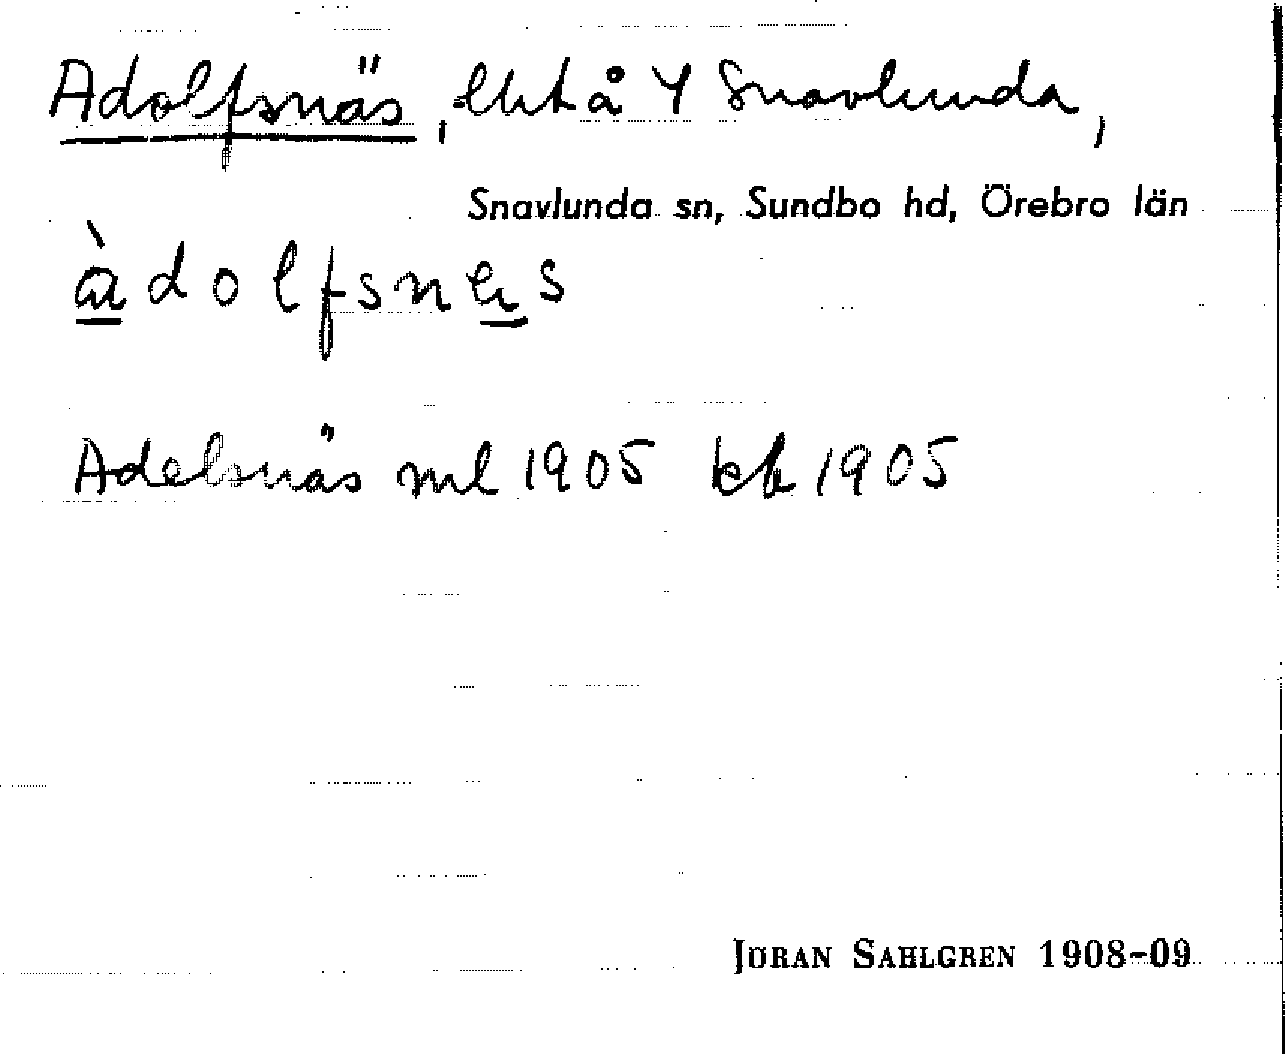 Adolfsnäs, lht å Y Snavlunda,
Snavlunda sn, Sundbo hd, Örebro län
àdolfsnes
Adelsnäs ml 1905 kb 1905
JÖRAN SAHLGREN 1908-09